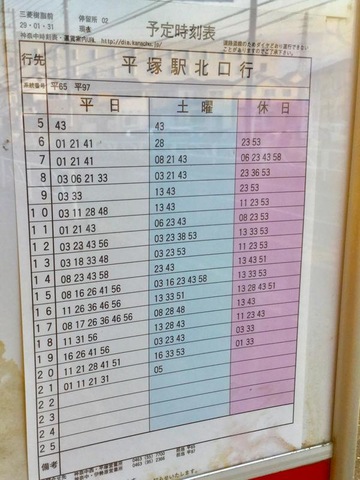 三菱樹脂前 停留所 02
29・01・31 現金
予定時刻表
神奈中時刻表・運賃案内URL http://dia.kanachu.jp/
道路混雑のためダイヤどおり運行できない
ことがありますのでご了承下さい。
行先 平塚駅北口行
系統番号 平65 平97
平日 土曜 休日
5 43 43
6 01 21 41 28 23 53
7 01 21 41 08 21 43 06 23 43 58
8 03 06 21 33 03 21 43 23 36 53
9 03 33 13 43 23 53
10 03 11 28 48 13 43 11 23 53
11 01 21 43 06 23 43 08 23 53
12 03 23 43 56 03 23 38 53 13 33 53
13 03 18 33 48 03 23 53 11 23 53
14 08 23 43 58 23 43 13 43 51
15 08 16 26 41 56 03 16 23 43 58 13 33 53
16 11 26 36 46 56 13 33 51 13 28 43 51
17 08 17 26 36 46 56 08 28 48 13 43
18 11 31 56 13 28 43 11 23 43
19 16 26 41 56 03 23 43 03 33
20 11 21 28 41 51 16 33 53 01 33
21 01 11 21 31 05
22
23
24
25
備考